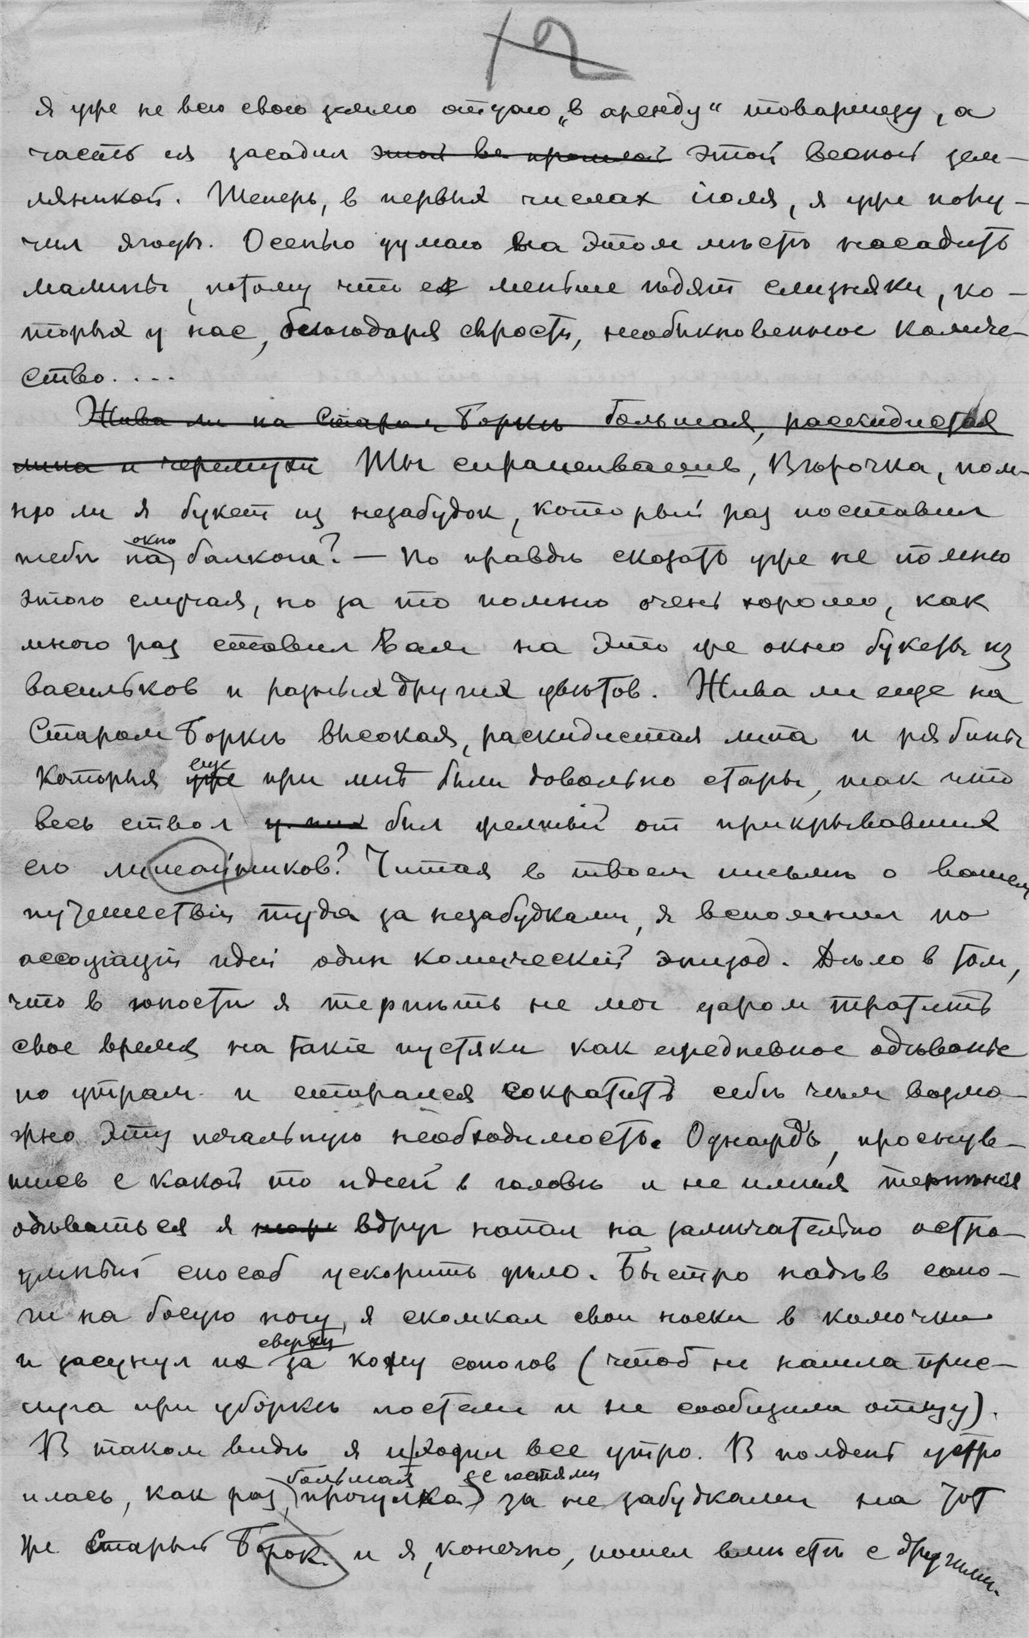 12
Я уже не всю свою землю отдаю „в аренду“ товарищу, а
часть ея засадил этой ве прошлой этой весной зем-
ляникой. Теперь, в первых числах iюля, я уже полу-
чил ягоды. Осенью думаю на этом месте насадить
малины, потому что ея меньше едят слизняки, ко-
торых у нас, благодаря сырости, необыкновенное количе-
ство....
Жива ли на Старом Борке большая, раскидистая
липа и черемухи Ты спрашиваешь, Верочка, пом-
ню ли я букет из незабудок, который раз поставил
окно
тебе на балкона? — По правде сказать уже не помню
этого случая, но за то помню очень хорошо, как
много раз ставил Вам на это же окно букеты из
васильков и разных других цветов. Жива ли еще на
Старом Борке высокая, раскидистая липа и рябины
еще
которыя уже при мне были довольно стары, так что
весь ствол у них был желтый от прикрывавших
его лишайников? Читая в твоем письме о вашем
путешествiи туда за незабудками, я вспомнил по
ассоцiацiи идей один комический эпизод. Дело в том,
что в юности я терпеть не мог даром тратить
свое время на такiе пустяки как ежедневное одеванье
по утрам и старался сократить себе чем возмо-
жно эту печальную необходимость. Однажды, проснув-
шись с какой то идеей в голове и не имея терпенья
одеваться я вдруг напал на замечательно остро-
умный способ ускорить дело. Быстро надев сапо-
ги на босую ногу, я скомкал свои носки в комочки
сверху
и засунул их за кожу сапогов (чтоб не нашла прис-
луга при уборке постели и не сообщила отцу).
В таком виде я и ходил все утро. В полдень устро
большая с гостями
илась, как раз, прогулка за незабудками на тот
же Старый Борок и я, конечно, пошел вместе с другими.